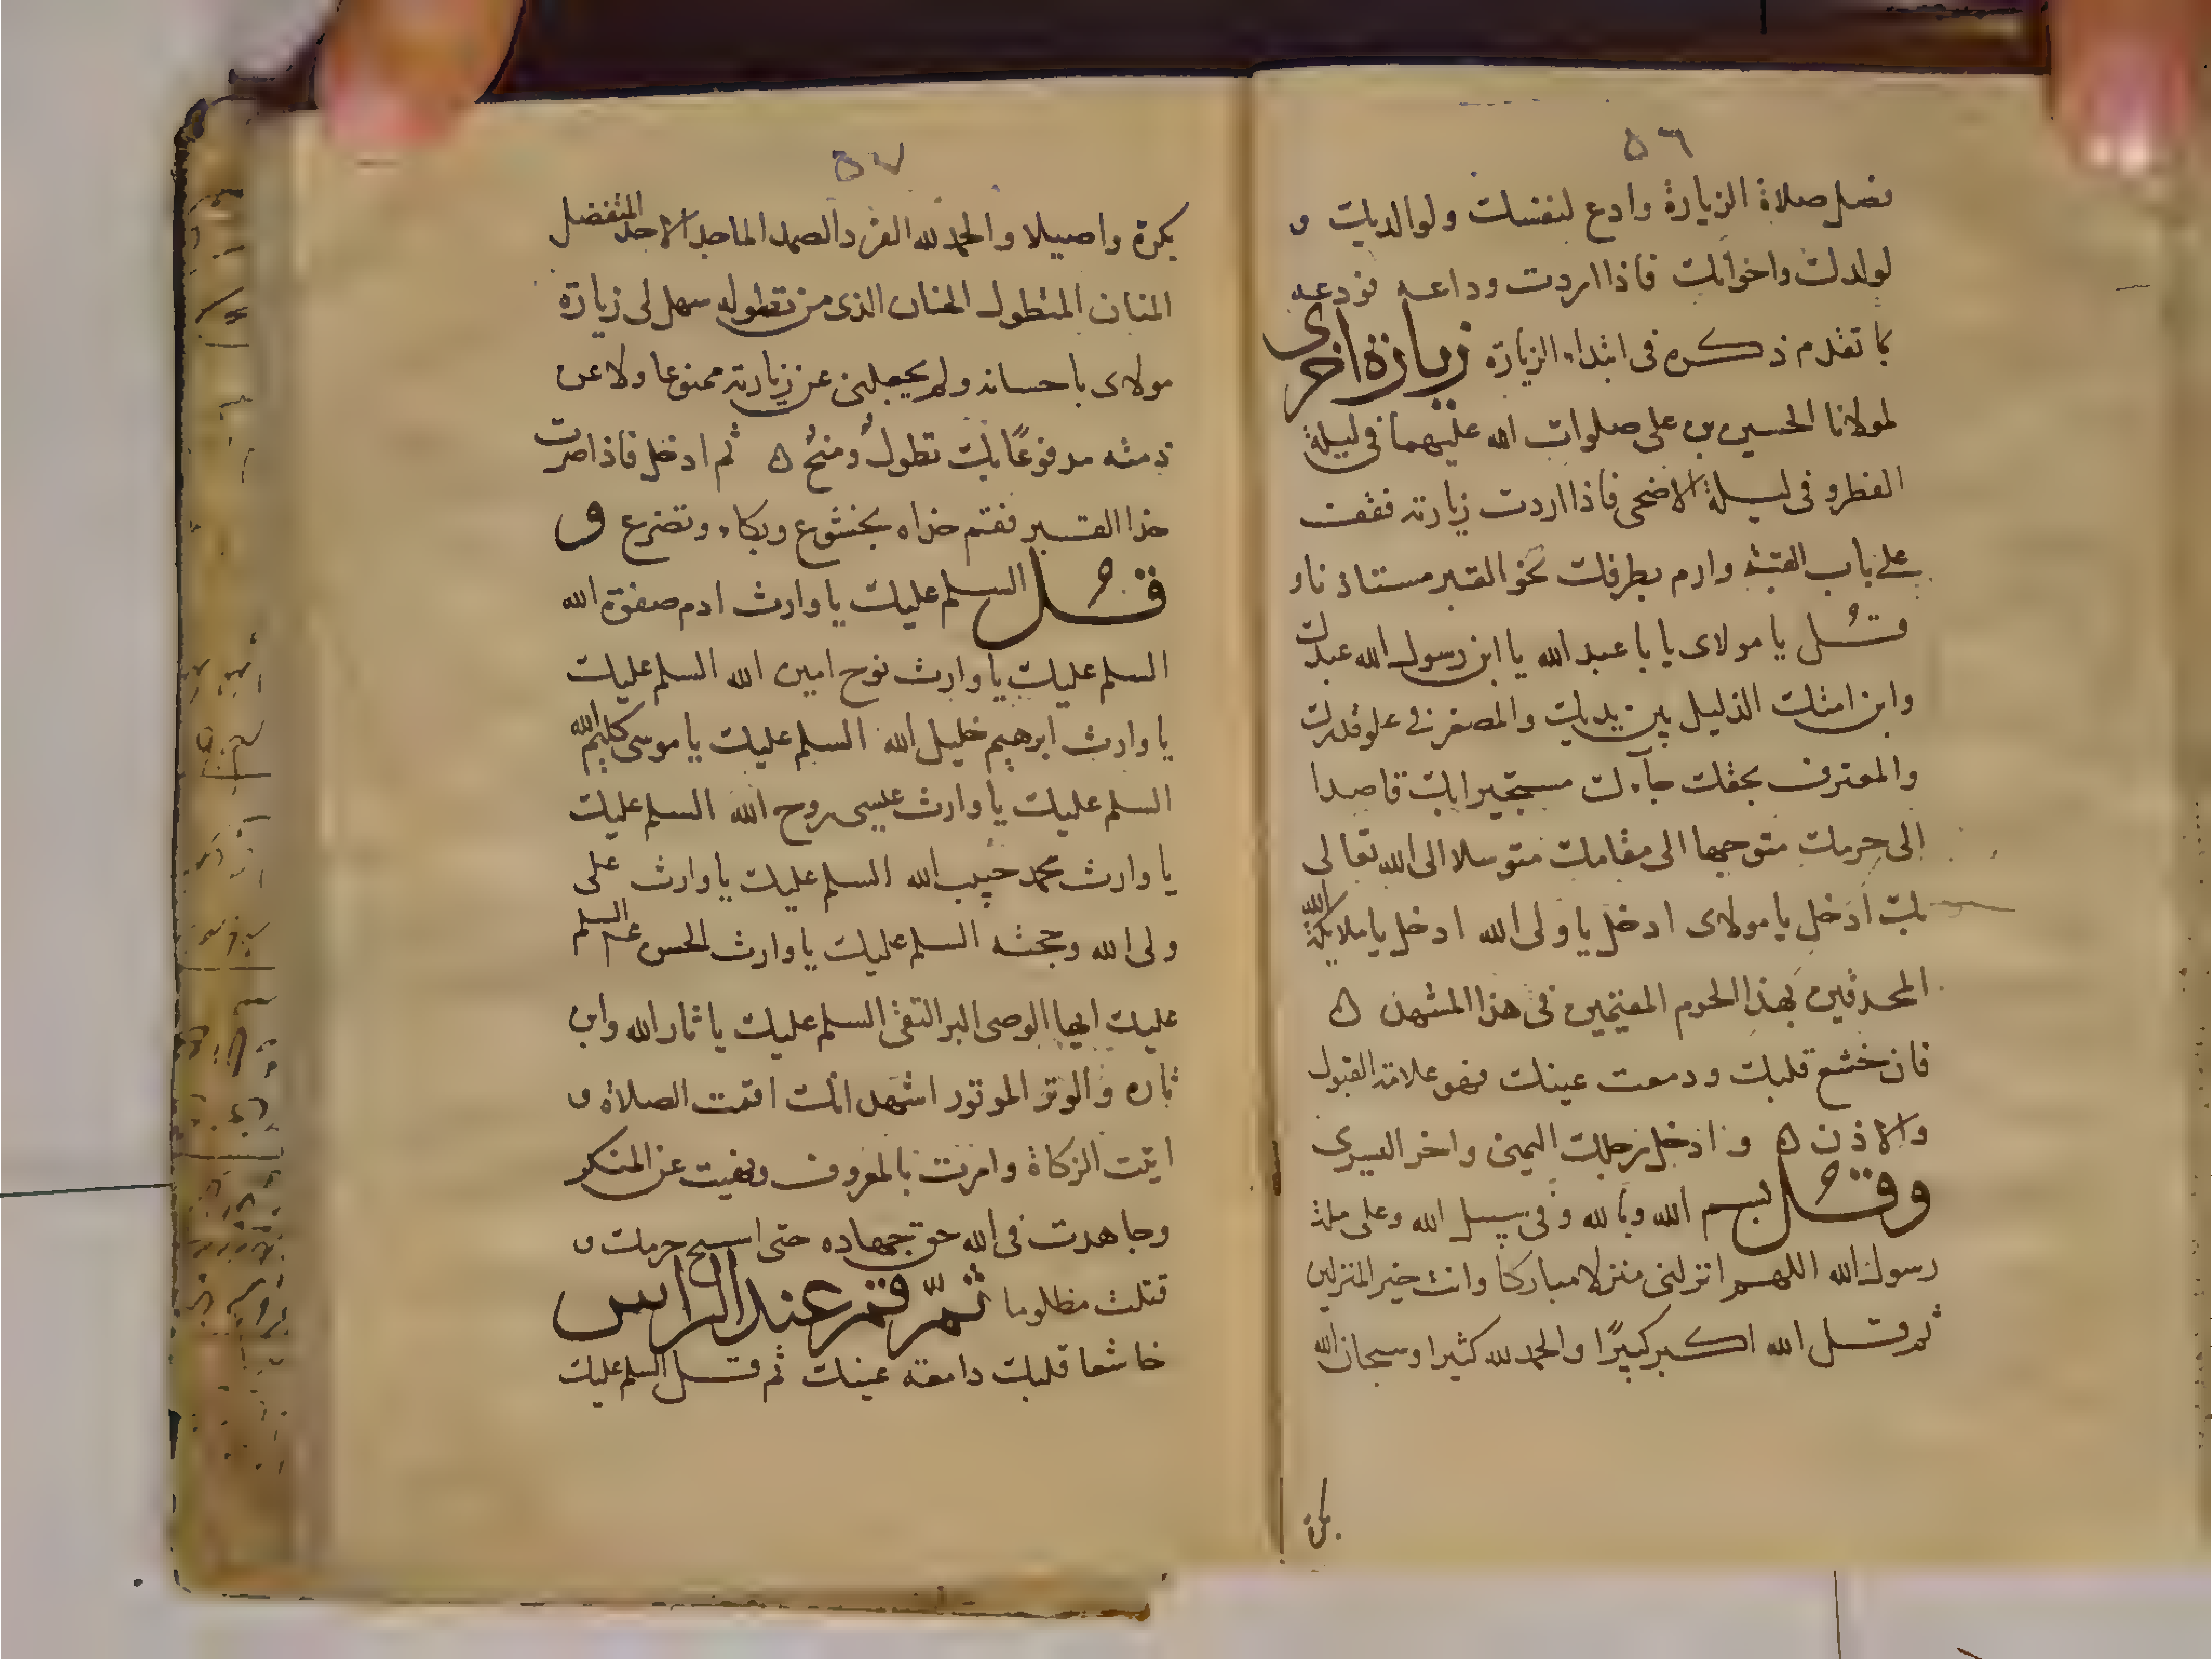 ٥٦
فصل صلاة الزيارة وادع لنفسك ولوالديك و
لولدك واخوانك فاذا اردت وداعه فودعه
بما تقدم ذكره فى ابتداء الزيارة زيارة اخرى
لمولانا الحسين بن على صلوات الله عليهما فى ليلة
الفطر و فى ليلة الاضحى فاذا اردت زيارته فقف
على باب القبة وارم بطرفك نحو القبر مستاذنا و
قُل يا مولاى يا با عبد الله يا ابن رسول الله عبدك
وابن امتك الذليل بين يديك والمصغر فى علو قدرك
والمعترف بحقك جاءك مستجيرا بك قاصدا
الى حرمك متوجها الى مقامك متوسلا الى الله تعالى
بك أادخل يا مولاى ادخل يا ولى الله ادخل يا ملائكة الله
المحدقين بهذا الحرم المقيمين فى هذا المشهد ٥
فان خشع قلبك ودمعت عينك فهو علامة القبول
والاذن ٥ وادخل رجلك اليمنى واخر اليسرى
وقُل بسم الله وبالله وفى سبيل الله وعلى ملة
رسول الله اللهم انزلنى منزلا مباركا وانت خير المنزلين
ثم قل الله اكبر كبيرًا والحمد لله كثيرا وسبحان الله
بكرة
٥٧
بكرة واصيلا والحمد لله الفرد الصمد الماجد الاحد المتفضل
المنان المتطول الحنان الذى من تطوله سهل لى زيارة
مولاى باحسانه ولم يجعلنى عن زيارته ممنوعا ولا عن
ذمته مدفوعًا بل تطول ومنح ٥ ثم ادخل فاذا صرت
حذا القبر فقم حذاه بخشوع وبكاء وتضرع و
قُل السلم عليك يا وارث ادم صفوة الله
السلم عليك يا وارث نوح امين الله السلم عليك
يا وارث ابرهيم خليل الله السلم عليك يا موسى كليم الله
السلم عليك يا وارث عيسى روح الله السلم عليك
يا وارث محمد حبيب الله السلم عليك يا وارث على
ولى الله وحجته السلم عليك يا وارث الحسن السلم
عليك ايها الوصى البر التقى السلم عليك يا ثار الله وابن
ثاره والوتر الموتور اشهد انك اقمت الصلاة و
اتيت الزكاة وامرت بالمعروف ونهيت عن المنكر
وجاهدت فى الله حق جهاده حتى استبيح حرمك و
قتلت مظلوما ثمّ قم عند الراس
خاشعا قلبك دامعة عينك ثم قل السلم عليك